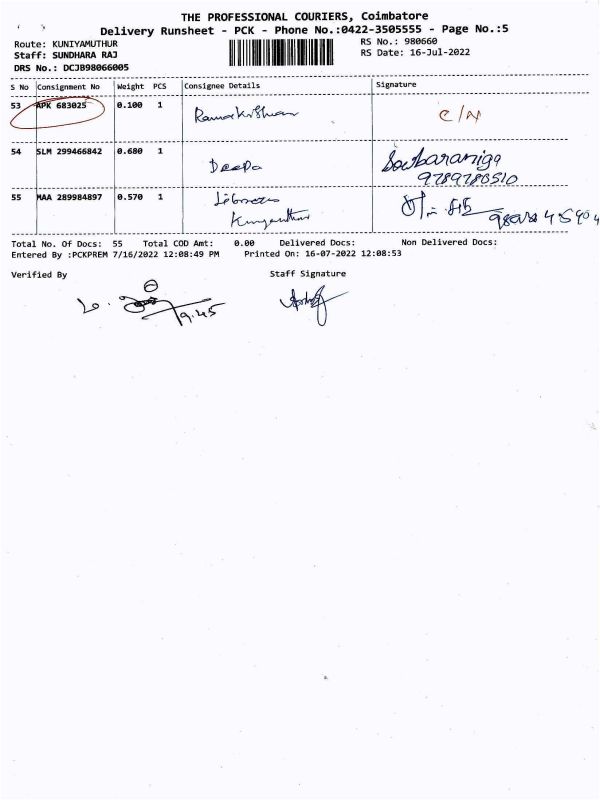 THE PROFESSIONAL COURIERS, Coimbatore
Delivery Runsheet - PCK - Phone No.:0422-3505555 - Page No.:5
Route: KUNIYAMUTHUR RS No.: 980660
Staff: SUNDHARA RAJ RS Date: 16-Jul-2022
DRS No.: DCJB98066005
S No Consignment No Weight PCS Consignee Details Signature
53 APK 683025 0.100 1 Ramakrishnan C/N
54 SLM 299466842 0.680 1 Deepa Soubaraniga
9789788510
55 MAA 289984897 0.570 1
Total No. Of Docs: 55 Total COD Amt: 0.00 Delivered Docs: Non Delivered Docs:
Entered By :PCKPREM 7/16/2022 12:08:49 PM Printed On: 16-07-2022 12:08:53
Verified By Staff Signature
9.45